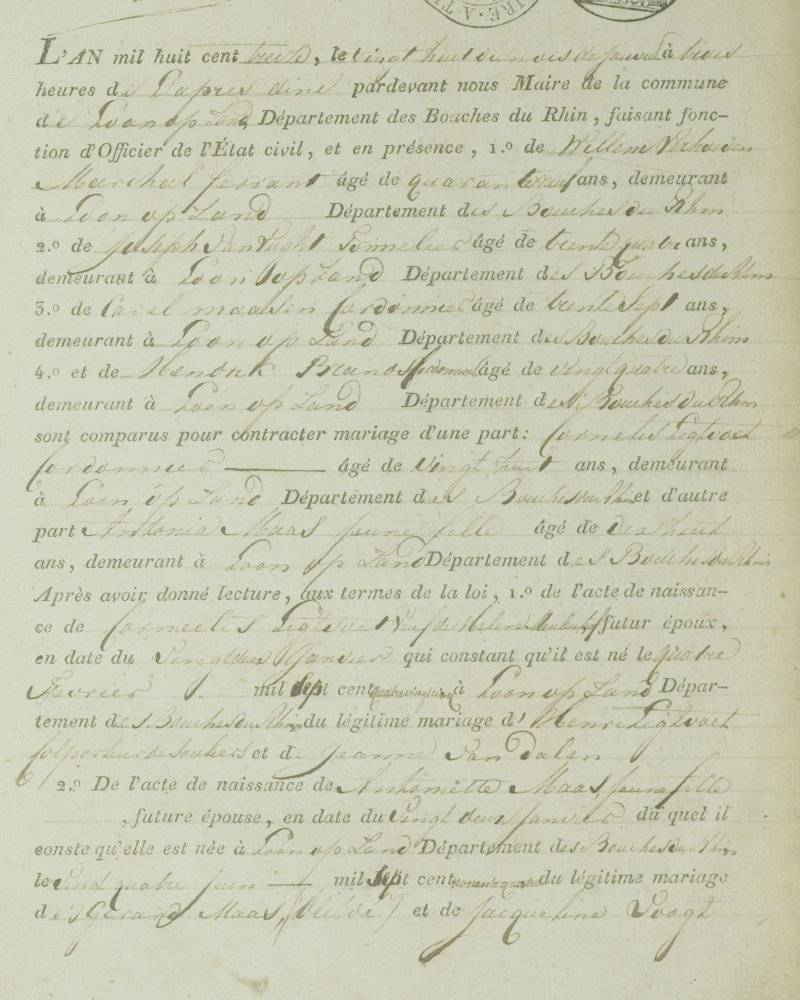 RE-A-T
L'AN mil huit cent treize, le vingt huit du mois de Janvier à trois
heures de l'apres diné pardevant nous Maire de la commune
de Loon op Zand, Département des Bouches du Rhin, faisant fonc-
tion d'Officier de l'État civil, et en présence, 1.º de Willem Verhoeven
Marchal ferrant âgé de quarante neuf ans, demeurant
à Loon op Zand Département des Bouches du Rhin
2.º de Joseph Van Tonnelier âgé de trente quatre ans,
demeurant à Loon op Zand Département des Bouches du Rhin
3.º de Carel maasen Cordonnier âgé de trente Sept ans,
demeurant à Loon op Zand Département des Bouches du Rhin
4.º et de Hendrik Cordonnier âgé de vingt quatre ans,
demeurant à Loon op Zand Département des Bouches du Rhin
sont comparus pour contracter mariage d'une part: Cornelis Ligtvoet
Cordonnier âgé de vingt huit ans, demeurant
à Loon op Zand Département des Bouches du Rhin et d'autre
part Antonia Maas jeune fille âgé de dix huit
ans, demeurant à Loon op Zand Département des Bouches du Rhin
Après avoir donné lecture, aux termes de la loi, 1.º de l'acte de naissan-
ce de Cornelis Ligtvoet Veuf de Helene futur époux,
en date du Vingt deux Janvier qui constant qu'il est né le quatre
Fevrier mil Sept cent quatre vingt cinq à Loon op Zand Dépar-
tement des Bouches du Rhin, du légitime mariage d'Henri Ligtvoet
Colporteur de Souliers et d. Jeanne Van Dalen
2.º De l'acte de naissance de Antoinette Maas jeune fille
, future épouse, en date du Vingt deux Janvier du quel il
conste qu'elle est née à Loon op Zand Département des Bouches du Rhin
le Vingt quatre Juin mil Sept cent nonante quatre du légitime mariage
de Gerard Maas, et de Jacqueline Voogt